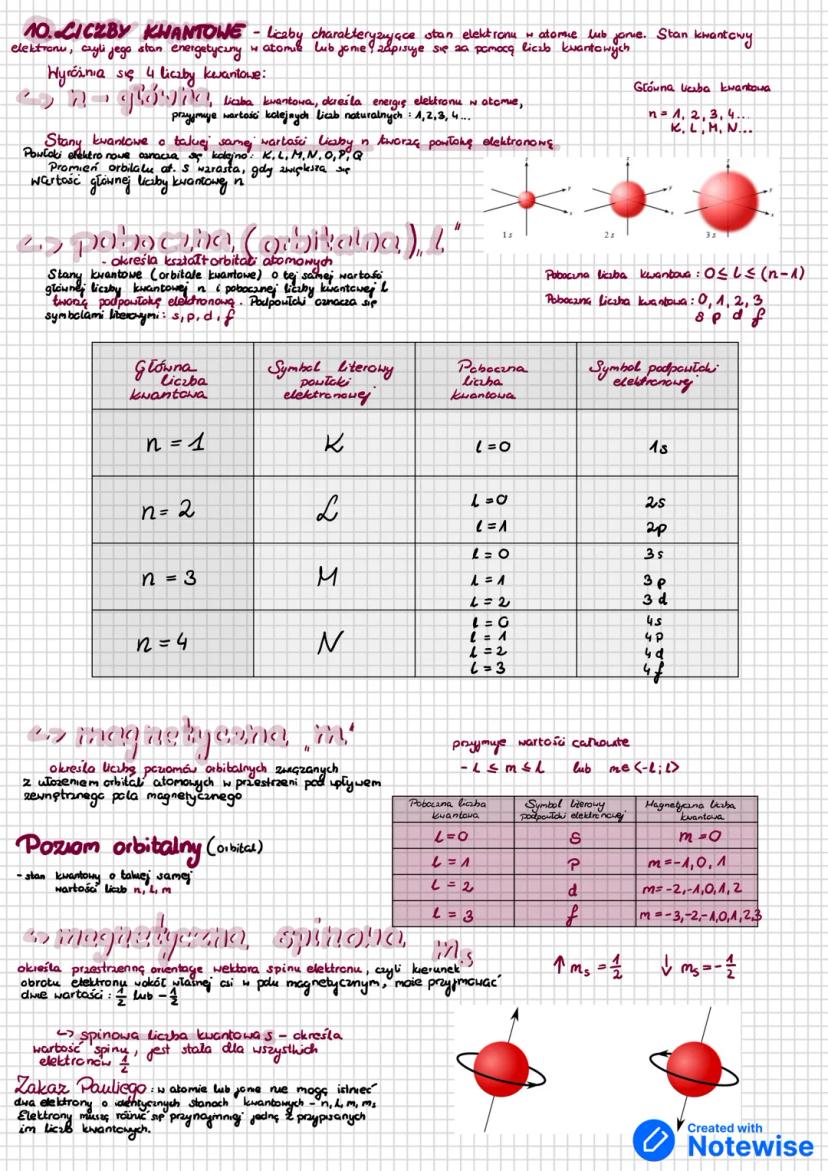 10. LICZBY KWANTOWE - liczby charakteryzujące stan elektronu w atomie lub jonie. Stan kwantowy
elektronu, czyli jego stan energetyczny w atomie lub jonie, zapisuje się za pomocą liczb kwantowych
Wyróżnia się 4 liczby kwantowe:
↳ n - główna, liczba kwantowa, określa energię elektronu w atomie,
przyjmuje wartości kolejnych liczb naturalnych: 1, 2, 3, 4...
Główna liczba kwantowa
n = 1, 2, 3, 4...
K, L, M, N...
Stany kwantowe o takiej samej wartości liczby n tworzą powłokę elektronową
Powłoki elektronowe oznacza się kolejno: K, L, M, N, O, P, Q
Promień orbitalu at. s wzrasta, gdy zwiększa się
wartość głównej liczby kwantowej n
1s 2s 3s
↳ poboczna (orbitalna) "l"
- określa kształt orbitali atomowych
Stany kwantowe (orbitale kwantowe) o tej samej wartości
głównej liczby kwantowej n i pobocznej liczby kwantowej l
tworzą podpowłokę elektronową. Podpowłoki oznacza się
symbolami literowymi: s, p, d, f
Poboczna liczba kwantowa: 0 ≤ l ≤ (n-1)
Poboczna liczba kwantowa: 0, 1, 2, 3
s p d f
Główna liczba kwantowa | Symbol literowy powłoki elektronowej | Poboczna liczba kwantowa | Symbol podpowłoki elektronowej
n = 1 K l = 0 1s
n = 2 L l = 0 2s
l = 1 2p
n = 3 M l = 0 3s
l = 1 3p
l = 2 3d
n = 4 N l = 0 4s
l = 1 4p
l = 2 4d
l = 3 4f
↳ magnetyczna "m"
określa liczbę poziomów orbitalnych związanych
z ułożeniem orbitali atomowych w przestrzeni pod wpływem
zewnętrznego pola magnetycznego
przyjmuje wartości całkowite
- l ≤ m ≤ l lub m∈<-l; l>
Poboczna liczba kwantowa | Symbol literowy podpowłoki elektronowej | Magnetyczna liczba kwantowa
l = 0 s m = 0
l = 1 p m = -1, 0, 1
l = 2 d m = -2, -1, 0, 1, 2
l = 3 f m = -3, -2, -1, 0, 1, 2, 3
Poziom orbitalny (orbital)
- stan kwantowy o takiej samej
wartości liczb n, l, m
↳ magnetyczna spinowa ms
określa przestrzenną orientację wektora spinu elektronu, czyli kierunek
obrotu elektronu wokół własnej osi w polu magnetycznym, może przyjmować
dwie wartości: 1/2 lub -1/2
↑ ms = 1/2 ↓ ms = -1/2
↳ spinowa liczba kwantowa s - określa
wartość spinu, jest stała dla wszystkich
elektronów 1/2
Zakaz Pauliego: w atomie lub jonie nie mogą istnieć
dwa elektrony o identycznych stanach kwantowych - n, l, m, ms
Elektrony muszą różnić się przynajmniej jedną z przypisanych
im liczb kwantowych.
Created with
Notewise